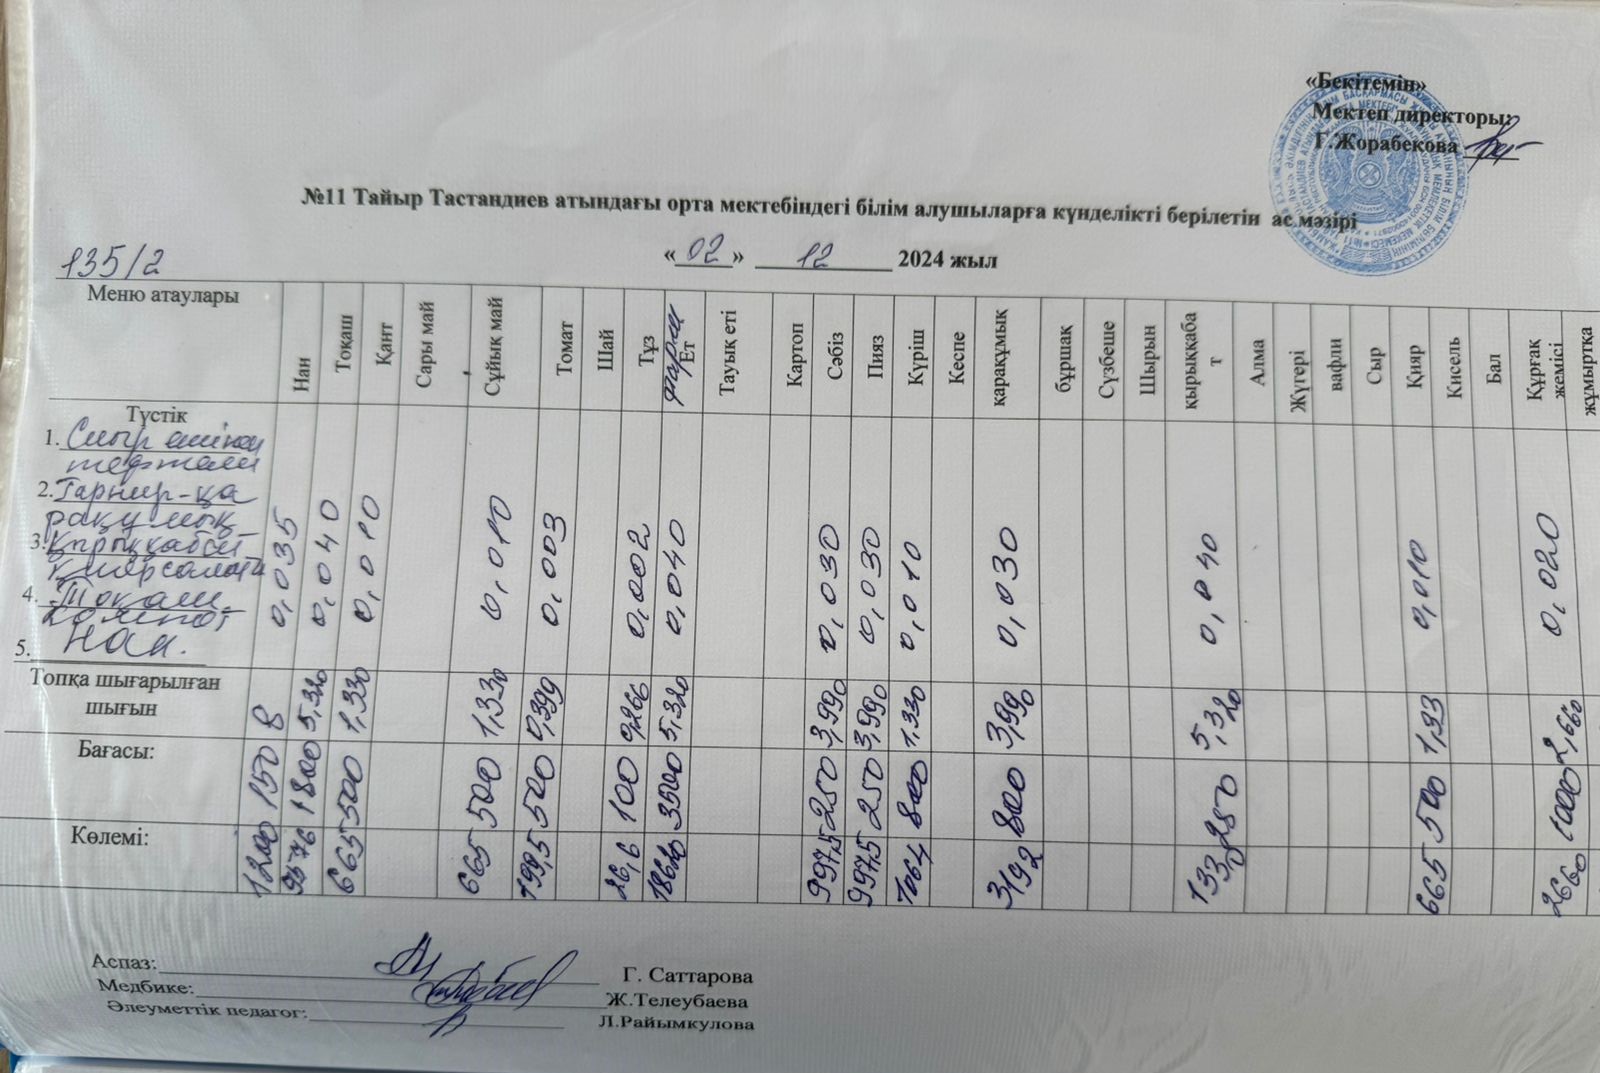 «Бекітемін»
Мектеп директоры:
Г.Жорабекова
№11 Тайыр Тастандиев атындағы орта мектебіндегі білім алушыларға күнделікті берілетін ас мәзірі
«02» 12 2024 жыл
135/2
Меню атаулары Нан Тоқаш Қант Сары май Сұйық май Томат Шай Тұз фарш Ет Тауық еті Картоп Сәбіз Пияз Күріш Кеспе қарақұмық бұршақ Сүзбеше Шырын қырыққабат Алма Жүгері вафли Сыр Қияр Кисель Бал Құрғақ жемісі жұмыртқа
Түстік
1. Сиыр етінен
тефтели
2. Гарнир-қа
рақұмық
3. Қырыққабат
қиярсалаты
4. Тоқаш
компот
5. Нан.
0,035 0,040 0,010 0,010 0,003 0,002 0,040 0,030 0,030 0,010 0,030 0,040 0,010 0,020
Топқа шығарылған
шығын
8 5,320 1,330 1,330 0,399 0,266 5,320 3,990 3,990 1,330 3,990 5,320 1,93 2,660
Бағасы: 150 1800 500 500 500 100 3500 250 250 800 800 250 500 1000
Көлемі: 1200 9576 665 665 199,5 26,6 18620 997,5 997,5 1064 3192 1330 665 2660
Аспаз: Г. Саттарова
Медбике: Ж.Телеубаева
Әлеуметтік педагог: Л.Райымкулова